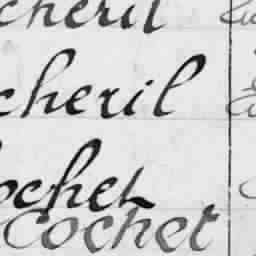 cheril
cheril
ochet
Cochet